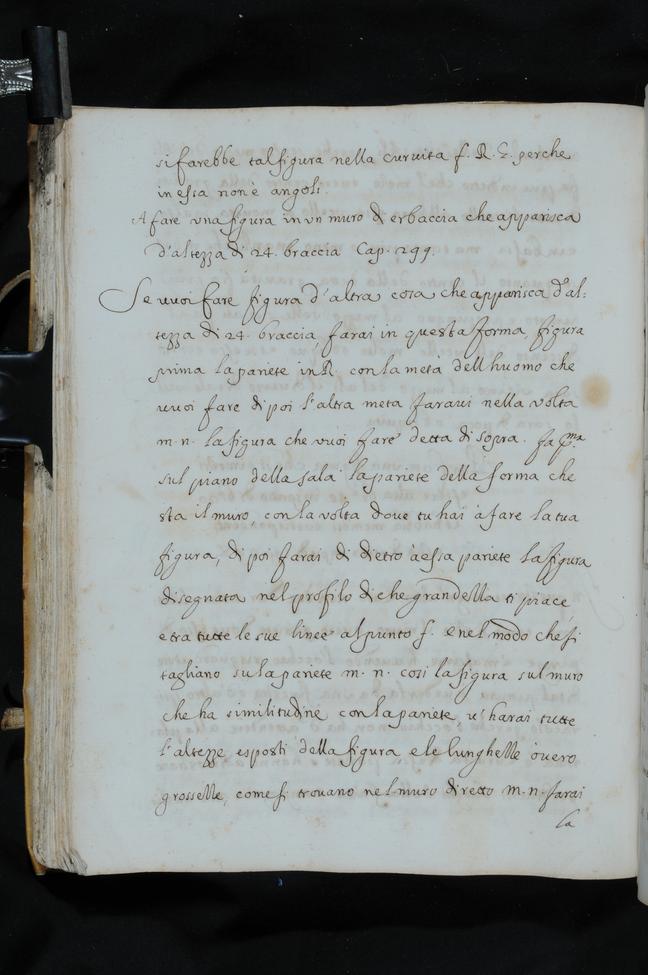 si farebbe tal figura nella curuita f. R. G. perche
in essa non è angoli.
A fare vna figura in vn muro di erbaccia che apparisca
d'altezza di 24. braccia Cap. 299.
Se vuoi fare figura d'altra cosa che apparisca d'al:
tezza di 24. braccia, farai in questa forma, figura
prima la pariete in R. con la meta dell huomo che
vuoi fare di poi l'altra meta faraui nella volta
m. n. la figura che vuoi fare detta di sopra. fa p.ma
sul piano della sala la pariete della forma che
sta il muro, con la volta doue tu hai à fare la tua
figura, di poi farai di dietro à essa pariete la figura
disegnata nel profilo di che grandezza ti piace
e tra tutte le sue linee al punto f. e nel modo che si
tagliano su la pariete m. n. cosi la figura sul muro
che ha similitudine con la pariete u' harai tutte
l'altezze esposti della figura e le lunghezze ouero
grossezze, come si trouano nel muro diretto m. n. farai
la